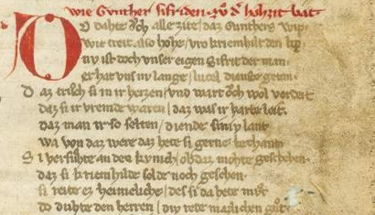 wie Gunther sifriden zů d' hohzit bat
Do dahte och alle zite / daz Gunthers wip
wie treit also hohe / vro kriemhilt den lip
nv ist doch vnser eigen Sifrit der man
er hat vns nv lange / lvcel dienste getan
Daz trvch si in ir herzen / vnd wart doch wol verdeit
daz si ir vremde waren / daz was ir harte leit
daz man ir so selten / diende sin lant
wa von daz were daz hete si gerne bechant
Si versůhte an den kvnich / ob daz mohte geschehen
daz si kriemhilde solde noch gesehen
si reite ez heimeliche / des si da hete mvt
do duhte den herren / div rede mazlichen gůt